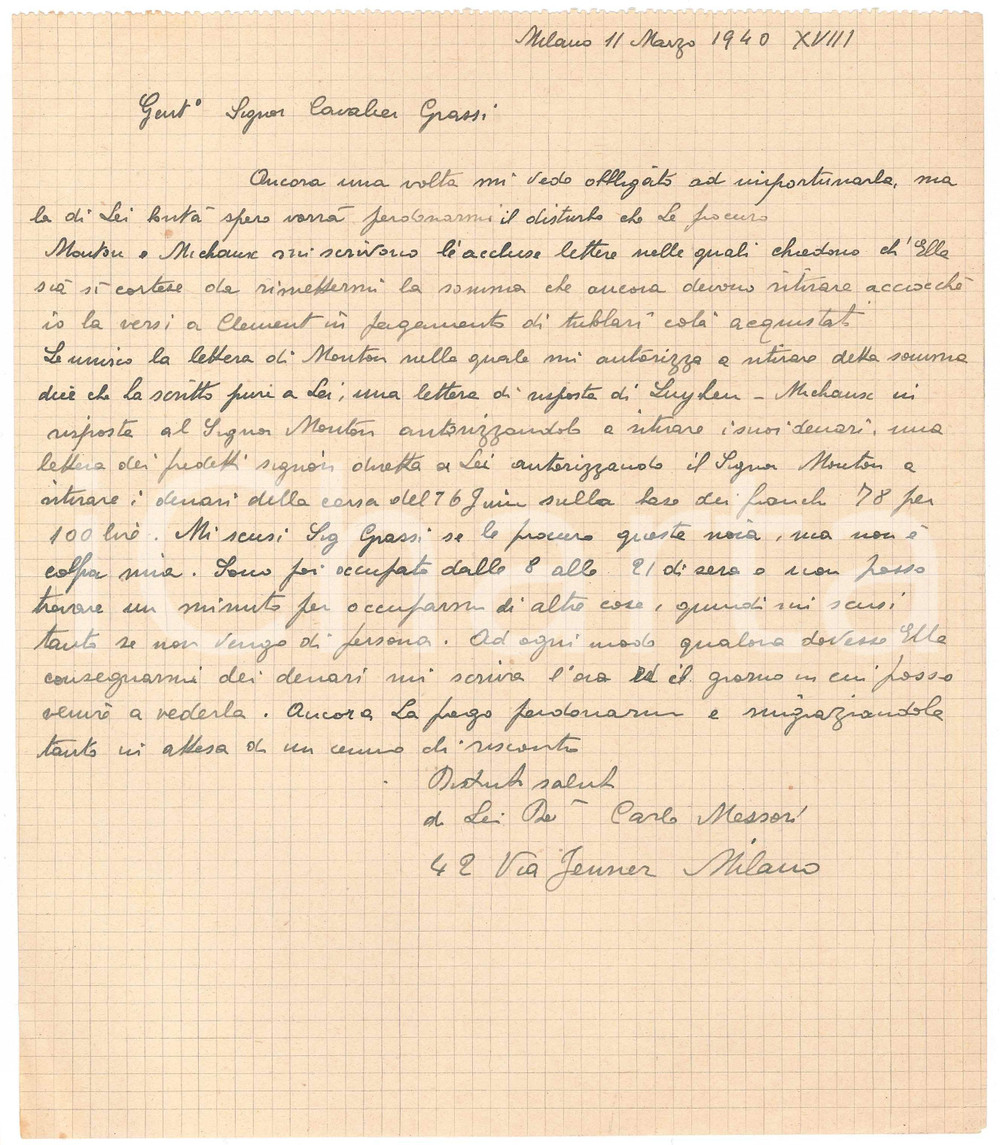 Milano 11 Marzo 1940 XVIII
Gent° Signor Cavalier Grassi
Ancora una volta mi vedo obbligato ad importunarla, ma
la di Lei bontà spero vorrà perdonarmi il disturbo che Le procuro
Mouton e Michaux mi scrivono l'è accluse lettere nelle quali chiedono ch'Ella
sia sì cortese da rimettermi la somma che ancora devono ritirare acciocché
io la versi a Clement in pagamento di tubolari colà acquistati
Le unisco la lettera di Mouton nella quale mi autorizza a ritirare detta somma
dice che ha scritto pure a Lei, una lettera di risposta di - Michaux in
risposta al Signor Mouton autorizzandolo a ritirare i suoi denari, una
lettera dei predetti signori diretta a Lei autorizzando il Signor Mouton a
ritirare i denari della corsa del sulla base dei franchi 78 per
100 lire. Mi scusi Sig Grassi se le procuro queste noia, ma non è
colpa mia. Sono poi occupato dalle 8 alle 21 di sera e non posso
trovare un minuto per occuparmi di altre cose, quindi mi scusi
tanto se non vengo di persona. Ad ogni modo qualora dovesse Ella
consegnarmi dei denari mi scriva l'ora ed il giorno in cui posso
venire a vederla. Ancora La prego perdonarmi e ringraziandola
tanto in attesa di un cenno di riscontro
Distinti saluti
di Lei Carlo Messori
42 Via Jenner Milano